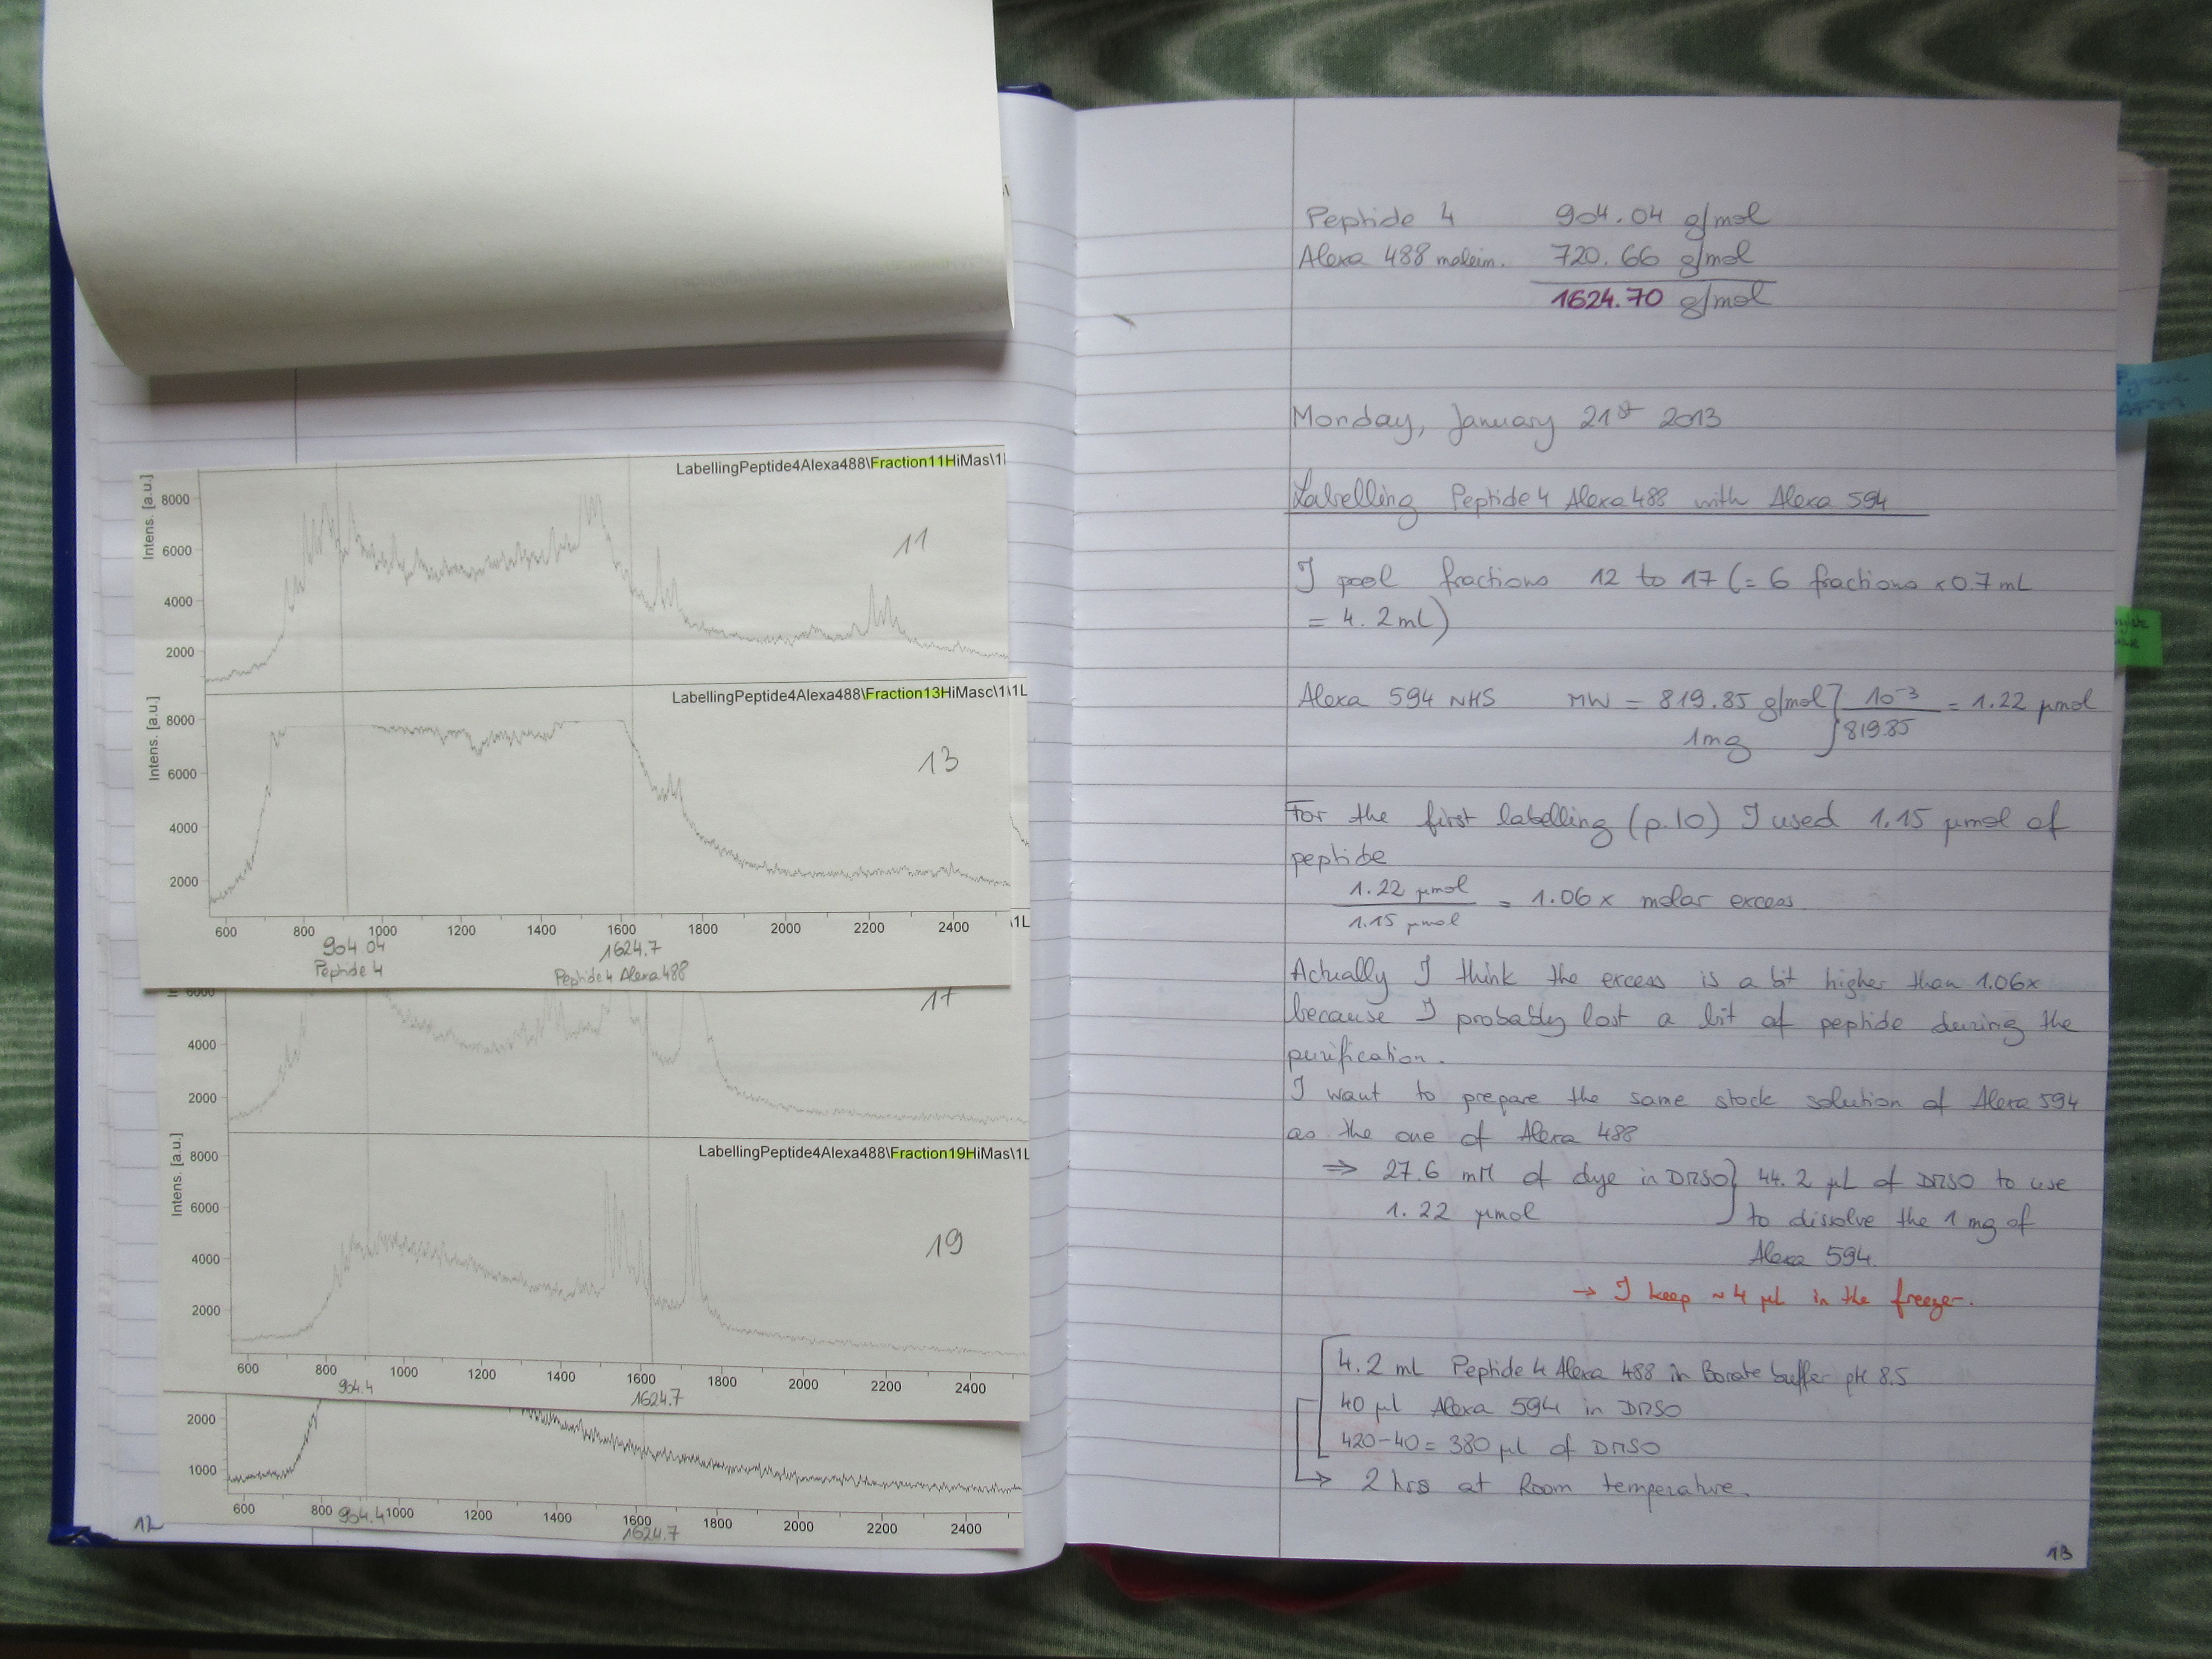 LabellingPeptide4Alexa488\Fraction11HiMas\1
Intens. [a.u.]
8000
6000
4000
2000
11
LabellingPeptide4Alexa488\Fraction13HiMasc\1\1L
Intens. [a.u.]
8000
6000
4000
2000
13
600 800 1000 1200 1400 1600 1800 2000 2200 2400
\1L
904.04 1624.7
Peptide 4 Peptide 4 Alexa 488
6000
4000
2000
17
LabellingPeptide4Alexa488\Fraction19HiMas\1L
Intens. [a.u.]
8000
6000
4000
2000
19
600 800 1000 1200 1400 1600 1800 2000 2200 2400
904.4 1624.7
2000
1000
600 800 904.4 1000 1200 1400 1600 1800 2000 2200 2400
1624.7
12
Peptide 4 904.04 g/mol
Alexa 488 maleim. 720.66 g/mol
1624.70 g/mol
Monday, January 21st 2013
Labelling Peptide 4 Alexa 488 with Alexa 594
I pool fractions 12 to 17 (= 6 fractions x 0.7 mL
= 4.2 mL)
Alexa 594 NHS MW = 819.85 g/mol } 10-3 / 819.85 = 1.22 µmol
1mg
For the first labelling (p.10) I used 1.15 µmol of
peptide
1.22 µmol / 1.15 µmol = 1.06x molar excess
Actually I think the excess is a bit higher than 1.06x
because I probably lost a bit of peptide during the
purification.
I want to prepare the same stock solution of Alexa 594
as the one of Alexa 488
⇒ 27.6 mM of dye in DMSO } 44.2 µL of DMSO to use
1.22 µmol to dissolve the 1 mg of
Alexa 594.
→ I keep ~ 4 µL in the freezer.
4.2 mL Peptide 4 Alexa 488 in Borate buffer pH 8.5
40 µl Alexa 594 in DMSO
420-40 = 380 µl of DMSO
→ 2 hrs at Room temperature.
13